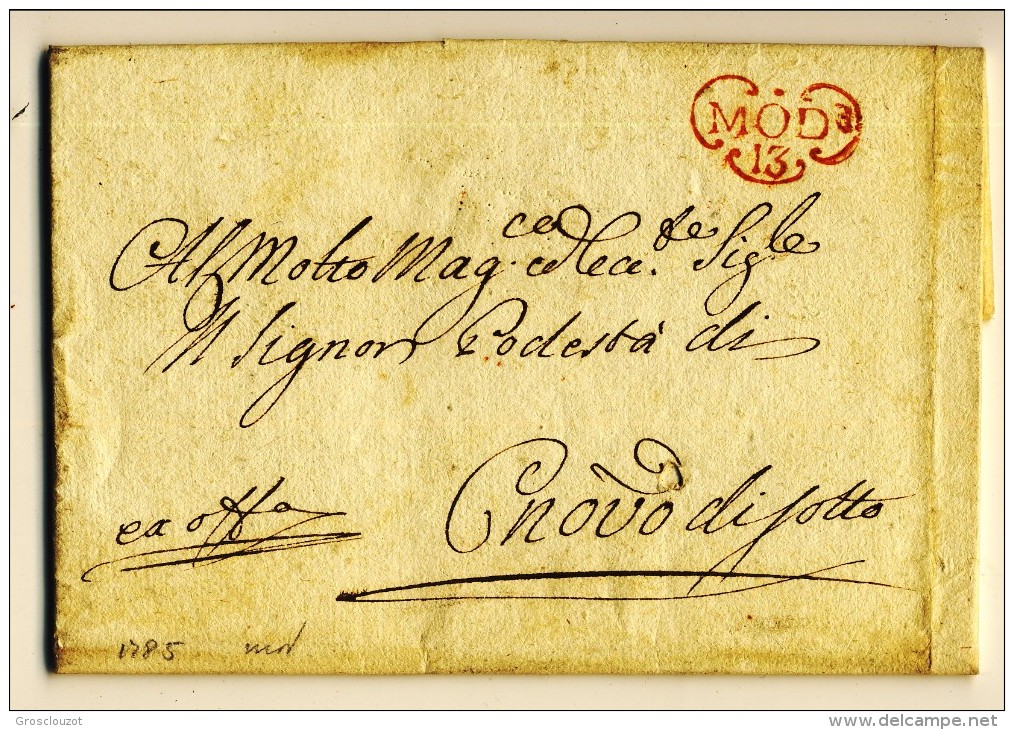 MOD.E
13
Al Molto Mag.co ed Ecc.te Sig.le
Il Signor Podestà di
Cnovo di sotto
ex offo
1785 mod
Grosclouzot
www.delcampe.net